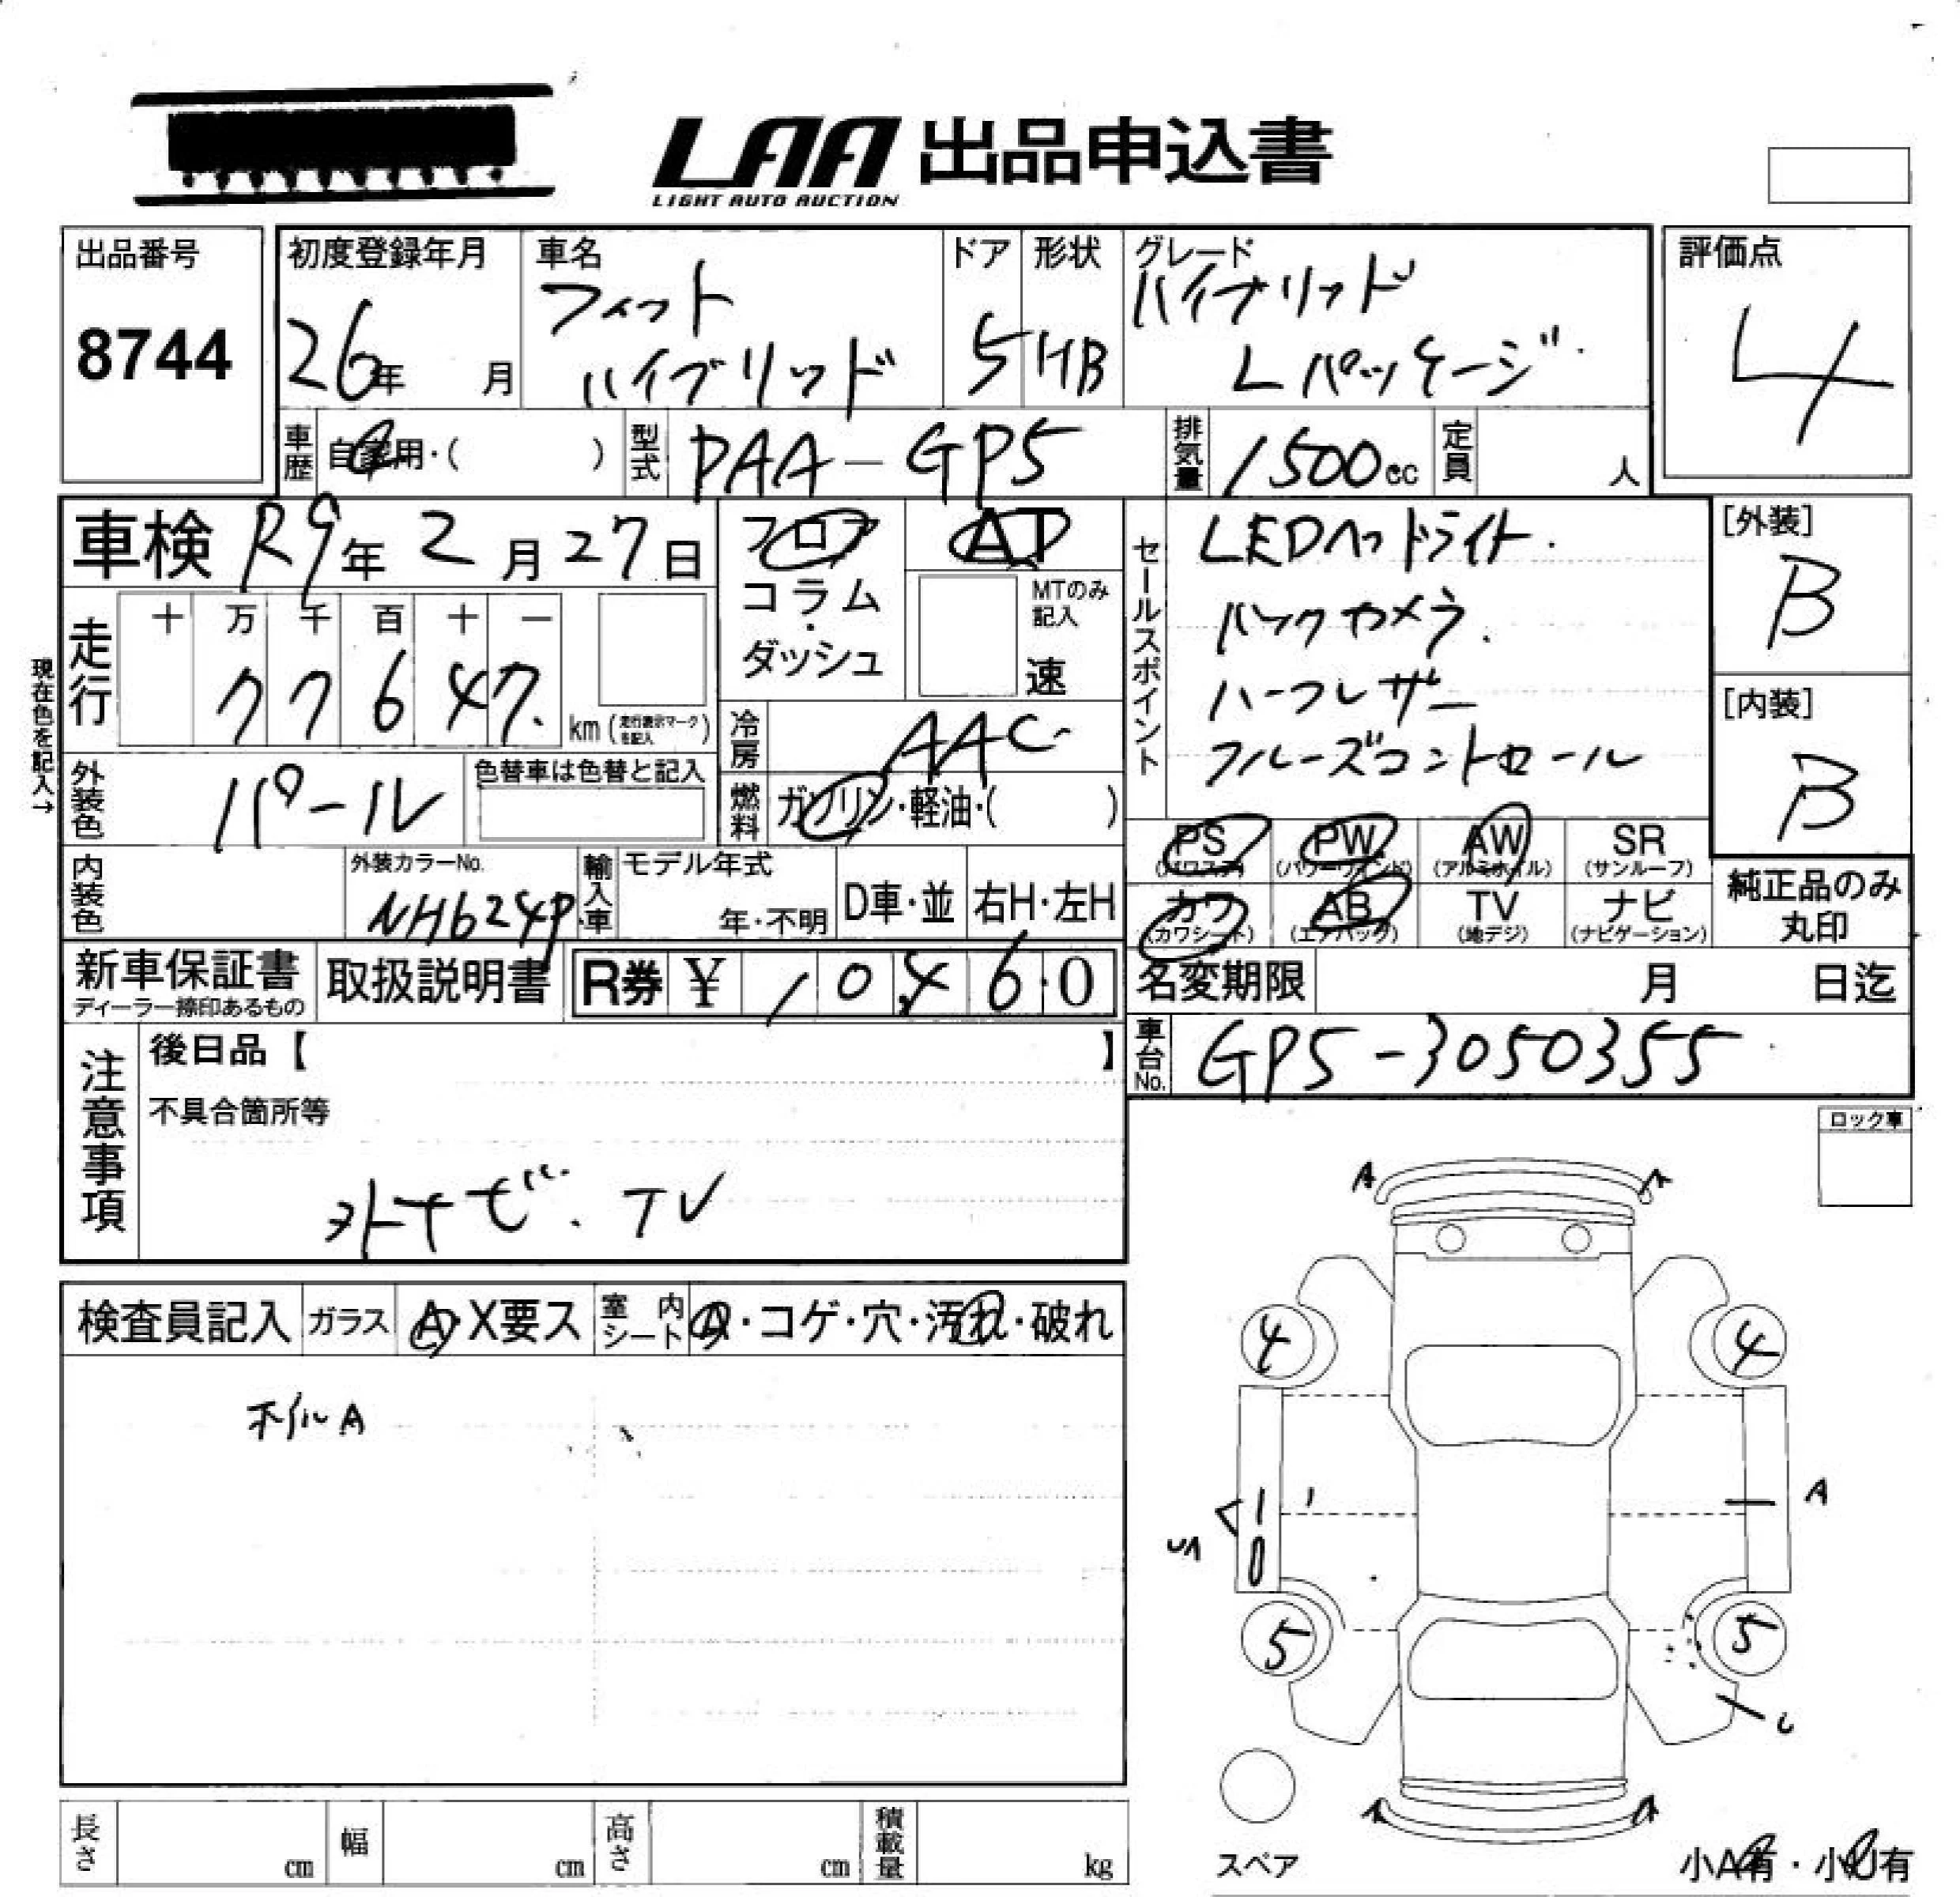 LAA 出品申込書
LIGHT AUTO AUCTION
出品番号
8744
初度登録年月
26年 月
車名
フィット
ハイブリッド
ドア
5
形状
HB
グレード
ハイブリッド
Lパッケージ
評価点
4
車歴 自家用・( )
型式 DAA-GP5
排気量 1500cc
定員 人
車検 R9年 2月 27日
フロア
コラム
・
ダッシュ
AT
MTのみ
記入
速
現在色を記入→
走行
十 万 千 百 十 一
7 7 6 4 7.
km (走行表示マークを記入)
冷房 AAC
外装色 パール
色替車は色替と記入
燃料 ガソリン・軽油・( )
内装色
外装カラーNo.
NH624P
輸入車
モデル年式
年・不明
D車・並
右H・左H
セールスポイント
LEDヘッドライト.
バックカメラ.
ハーフレザー
クルーズコントロール
[外装]
B
[内装]
B
PS
(パワステ)
PW
(パワーウィンド)
AW
(アルミホイル)
SR
(サンルーフ)
カワ
(カワシート)
AB
(エアバック)
TV
(地デジ)
ナビ
(ナビゲーション)
純正品のみ
丸印
新車保証書
ディーラー捺印あるもの
取扱説明書
R券 ¥ 10,460
名変期限 月 日迄
車台No. GP5-3050355
注意事項
後日品【 】
不具合箇所等
外ナビ. TV
ロック車
検査員記入
ガラス A・X要ス
室内シート
・コゲ・穴・汚れ・破れ
ホイルA
A
4 4
A
5 5
スペア
小A有・小U有
長さ cm
幅 cm
高さ cm
積載量 kg